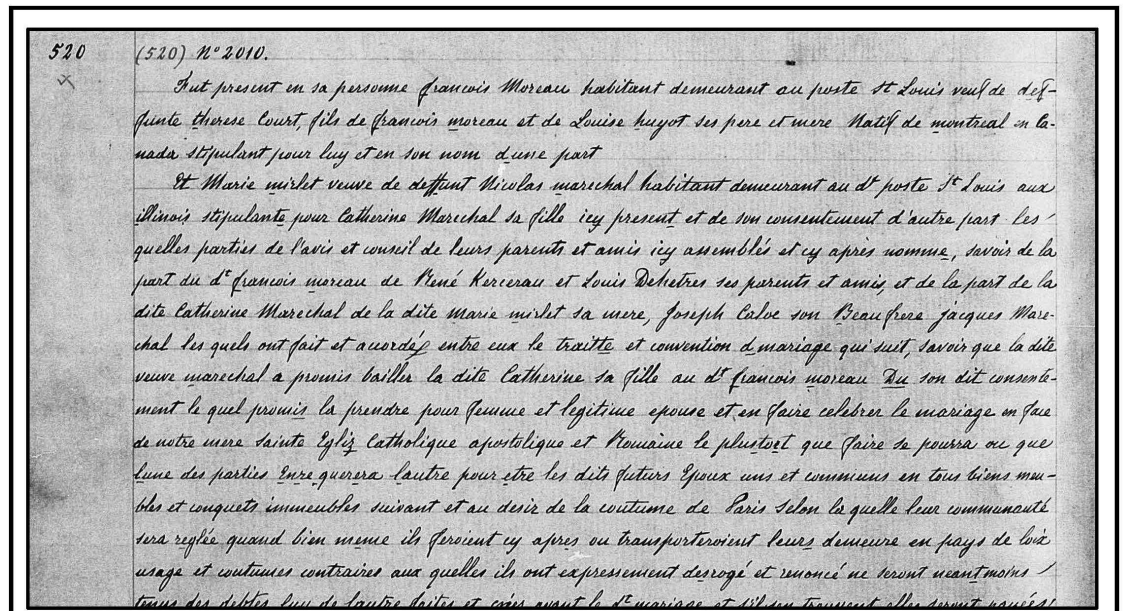 520
(520) No 2010.
Fut present en sa personne francois Moreau habitant demeurant au poste St Louis veuf de def-
funte therese Court, fils de francois moreau et de Louise huyot ses pere et mere Natif de montreal en Ca-
nada stipulant pour luy et en son nom dune part
Et Marie mirlet veuve de deffunt Nicolas marechal habitant demeurant au dt poste St Louis aux
illinois stipulante pour Catherine Marechal sa fille icy present et de son consentement d'autre part les
quelles parties de l'avis et conseil de leurs parents et amis icy assemblés et cy après nomme, savoir de la
part du dt francois moreau de René Kercerau et Louis Dehetres ses parents et amis, et de la part de la
dite Catherine Marechal de la dite Marie mirlet sa mere, Joseph Calve son Beau frere jacques Mare-
chal les quels ont fait et acordé entre eux le traitte et convention d mariage qui suit, savoir que la dite
veuve marechal a promis bailler la dite Catherine sa fille au dt francois moreau Du son dit consente-
ment le quel promis la prendre pour femme et legitime epouse et en faire celebrer le mariage en face
de notre mere Sainte Egliz Catholique apostolique et Romaine le plustort que faire se pourra ou que
lune des parties Enre querera lautre pour etre les dits futurs Epoux uns et communs en tous biens meu-
bles et conquets immeubles suivant et au desir de la coutume de Paris Selon la quelle leur communauté
sera reglée quand bien meme ils feroient cy apres ou transporteroient leurs demeure en pays de loix
usage et coutumes contraires aux quelles ils ont expressement desrogé et renoncé ne seront neantmoins
tenus des debtes luy de lautre faites et crées avant le dt mariage et s'il sen trouvent elles seront